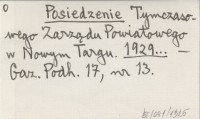 0
Posiedzenie Tymczaso-
wego Zarządu Powiatowego
w Nowym Targu. 1929... —
Gaz. Podh. 17, nr 13.